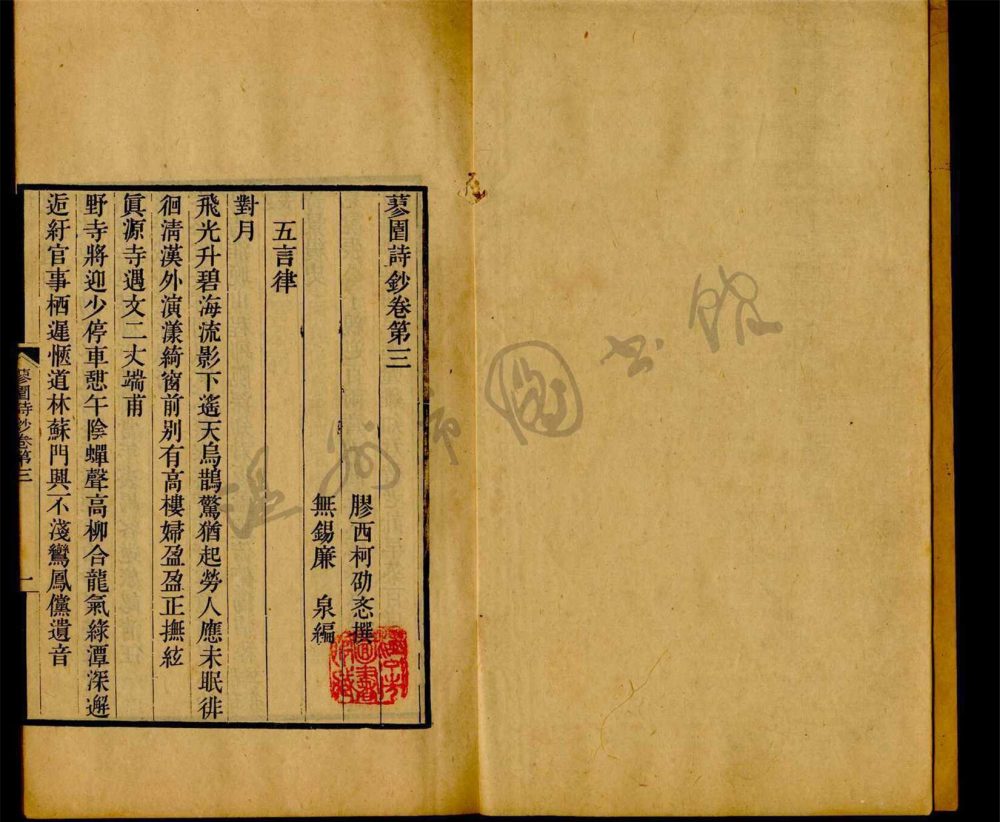 蓼園詩鈔卷第三
膠西柯劭忞撰
無錫廉　泉編
五言律
對月
飛光升碧海流影下遙天烏鵲驚猶起勞人應未眠徘
徊清漢外演漾綺窗前别有高樓婦盈盈正撫絃
眞源寺遇文二丈端甫
野寺將迎少停車憩午陰蟬聲高柳合龍氣綠潭深邂
逅紆官事栖遲愜道林蘇門興不淺鸞鳳儻遺音
蓼園詩鈔卷第三
一
温州市圖書館